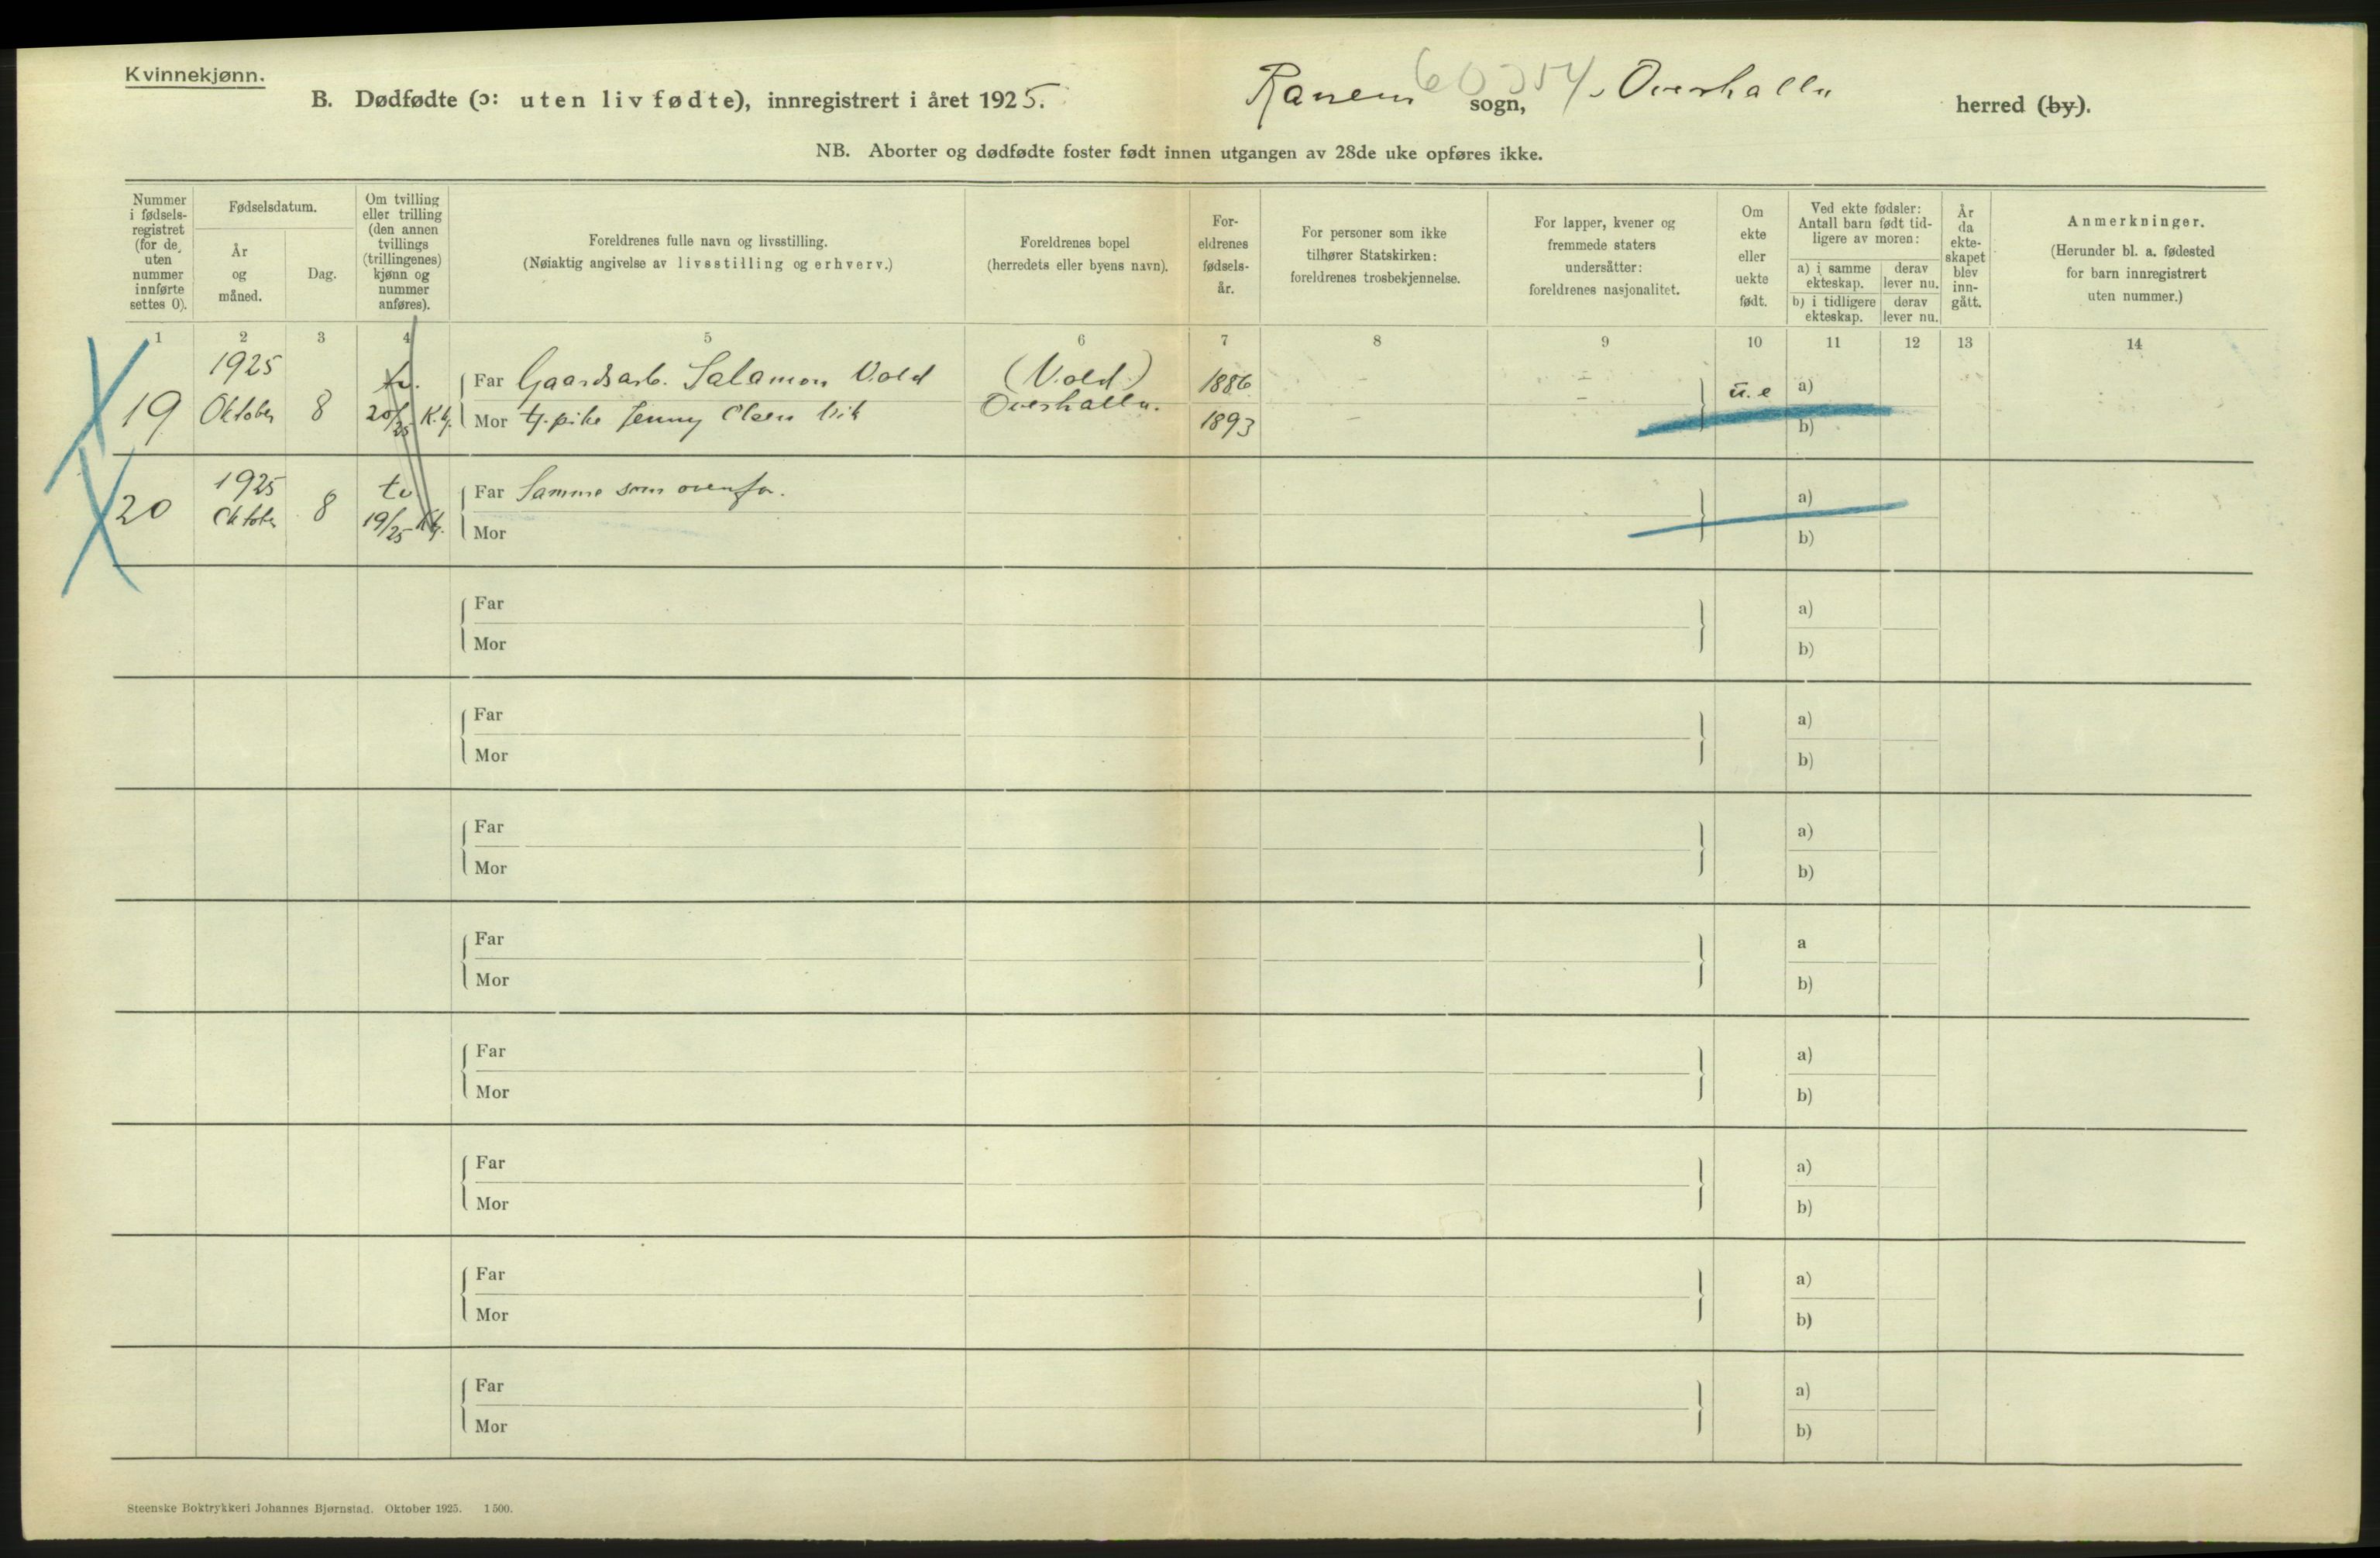 Kvinnekjønn.
B. Dødfødte (ɔ: uten liv fødte), innregistrert i året 1925.
Ranem sogn, Overhalla herred (by).
NB. Aborter og dødfødte foster født innen utgangen av 28de uke opføres ikke.
Nummer i fødsels-
registret
(for de
uten
nummer
innførte
settes 0).
Fødselsdatum.
År
og
måned.
Dag.
Om tvilling
eller trilling
(den annen
tvillings
(trillingenes)
kjønn og
nummer
anføres).
Foreldrenes fulle navn og livsstilling.
(Nøiaktig angivelse av livsstilling og erhverv.)
Foreldrenes bopel
(herredets eller byens navn).
For-
eldrenes
fødsels-
år.
For personer som ikke
tilhører Statskirken:
foreldrenes trosbekjennelse.
For lapper, kvener og
fremmede staters
undersåtter:
foreldrenes nasjonalitet.
Om
ekte
eller
uekte
født.
Ved ekte fødsler:
Antall barn født tid-
ligere av moren:
a) i samme
ekteskap.
derav
lever nu.
b) i tidligere
ekteskap.
derav
lever nu.
År
da
ekte-
skapet
blev
inn-
gått.
Anmerkninger.
(Herunder bl. a. fødested
for barn innregistrert
uten nummer.)
1 2 3 4 5 6 7 8 9 10 11 12 13 14
1925 tv. Far Gaardsarb. Salamon Vold (Vold) 1886 - u.e a)
19 Oktober 8 20/25 K.kj. Mor tj.pike Jenny Olsen Vik Overhalla. 1893 - - b)
1925 tv. Far Samme som ovenfor. a)
20 Oktober 8 19/25 K.kj. Mor b)
Far a)
Mor b)
Far a)
Mor b)
Far a)
Mor b)
Far a
Mor b)
Far a)
Mor b)
Far a)
Mor b)
Far a)
Mor b)
Far a)
Mor b)
Steenske Boktrykkeri Johannes Bjørnstad. Oktober 1925. 1 500.